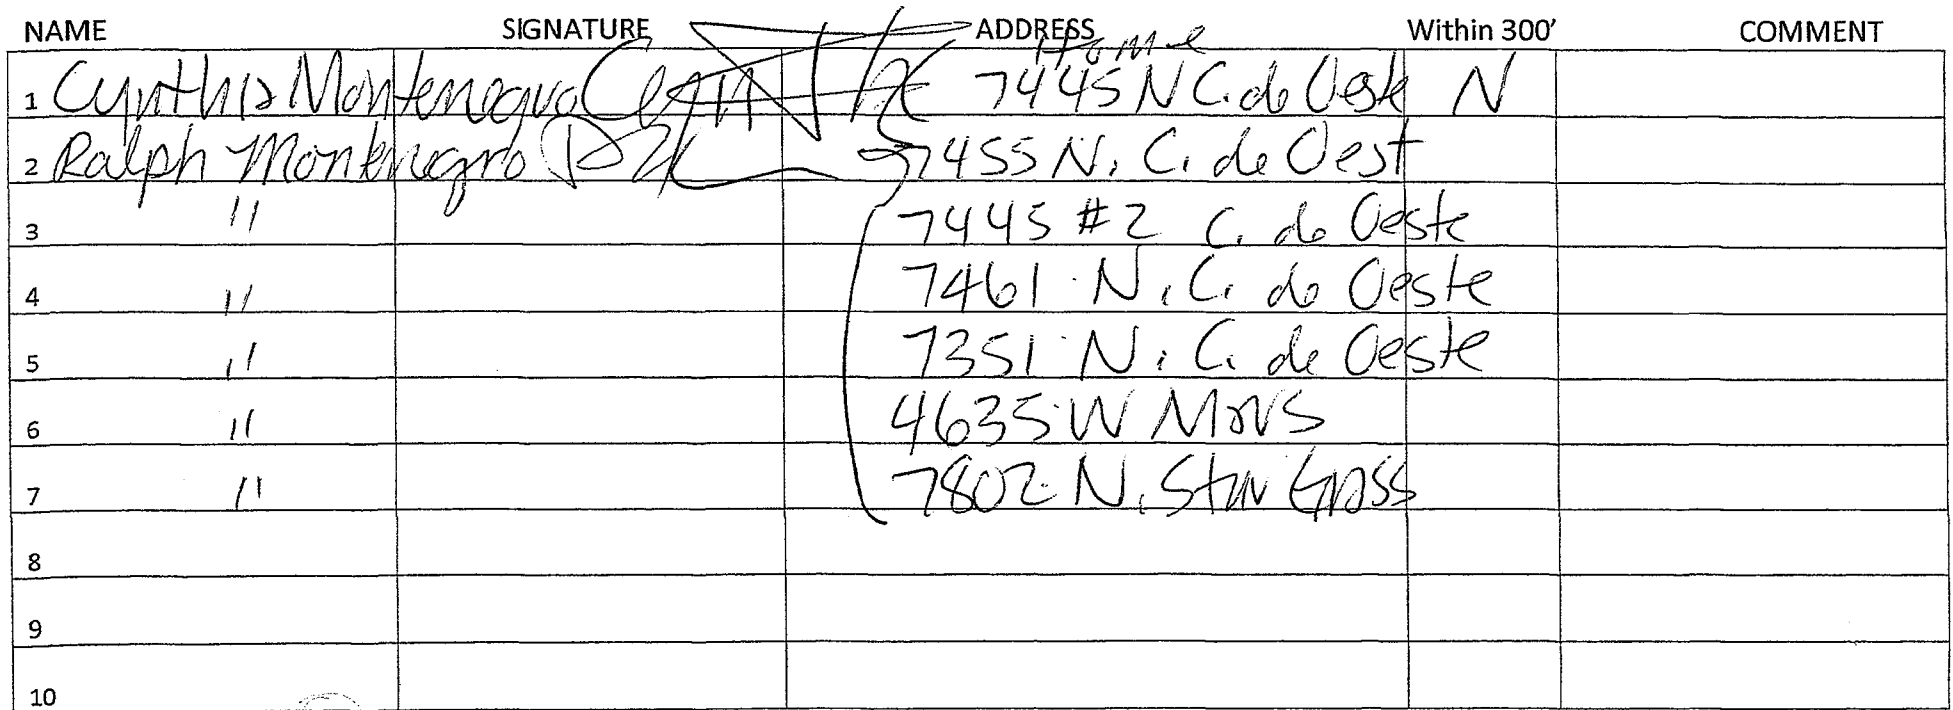 NAME SIGNATURE ADDRESS Within 300' COMMENT
Home
1 Cynthia Montenegro 7445 N C. de Oeste N
2 Ralph Montenegro 7455 N. C. de Oest
3 " 7445 #2 C. de Oeste
4 " 7461 N. C. de Oeste
5 " 7351 N. C. de Oeste
6 " 4635 W Mars
7 " 7802 N. Star Grass
8
9
10